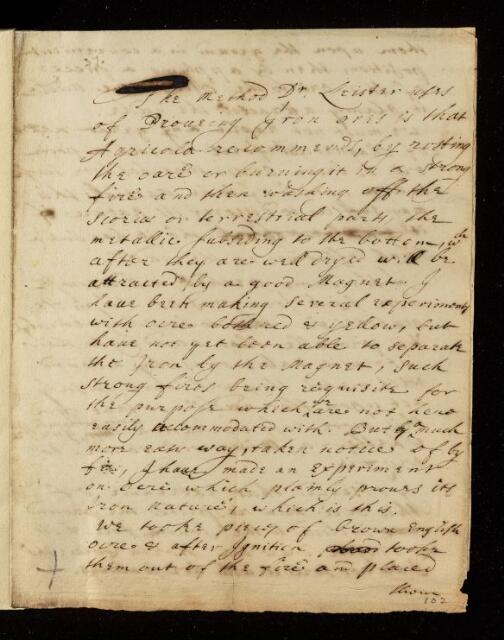 The Method Dr. Leister uses
of Proueing Iron ores is that
Agricola recommends, by rosting
the oare or burning it in a strong
fire and then washing off the
scoria or terrestrial parts, the
metallic subsiding to the bottom, wch
after they are well dryed will be
attracted by a good Magnet. I
have been making several experiments
with ocre both red & yellow, but
have not yet been able to separate
the Iron by the Magnet, such
strong fires being requisite for
the purpose which we are not here
easily accommodated with. But by much
more easy way, taken notice of by
I have made an Experiment
on ocre which plainly proues its
iron nature, which is this.
We tooke pieces of brown English
ocre & after Ignition tooke
them out of the fire and placed
them
102